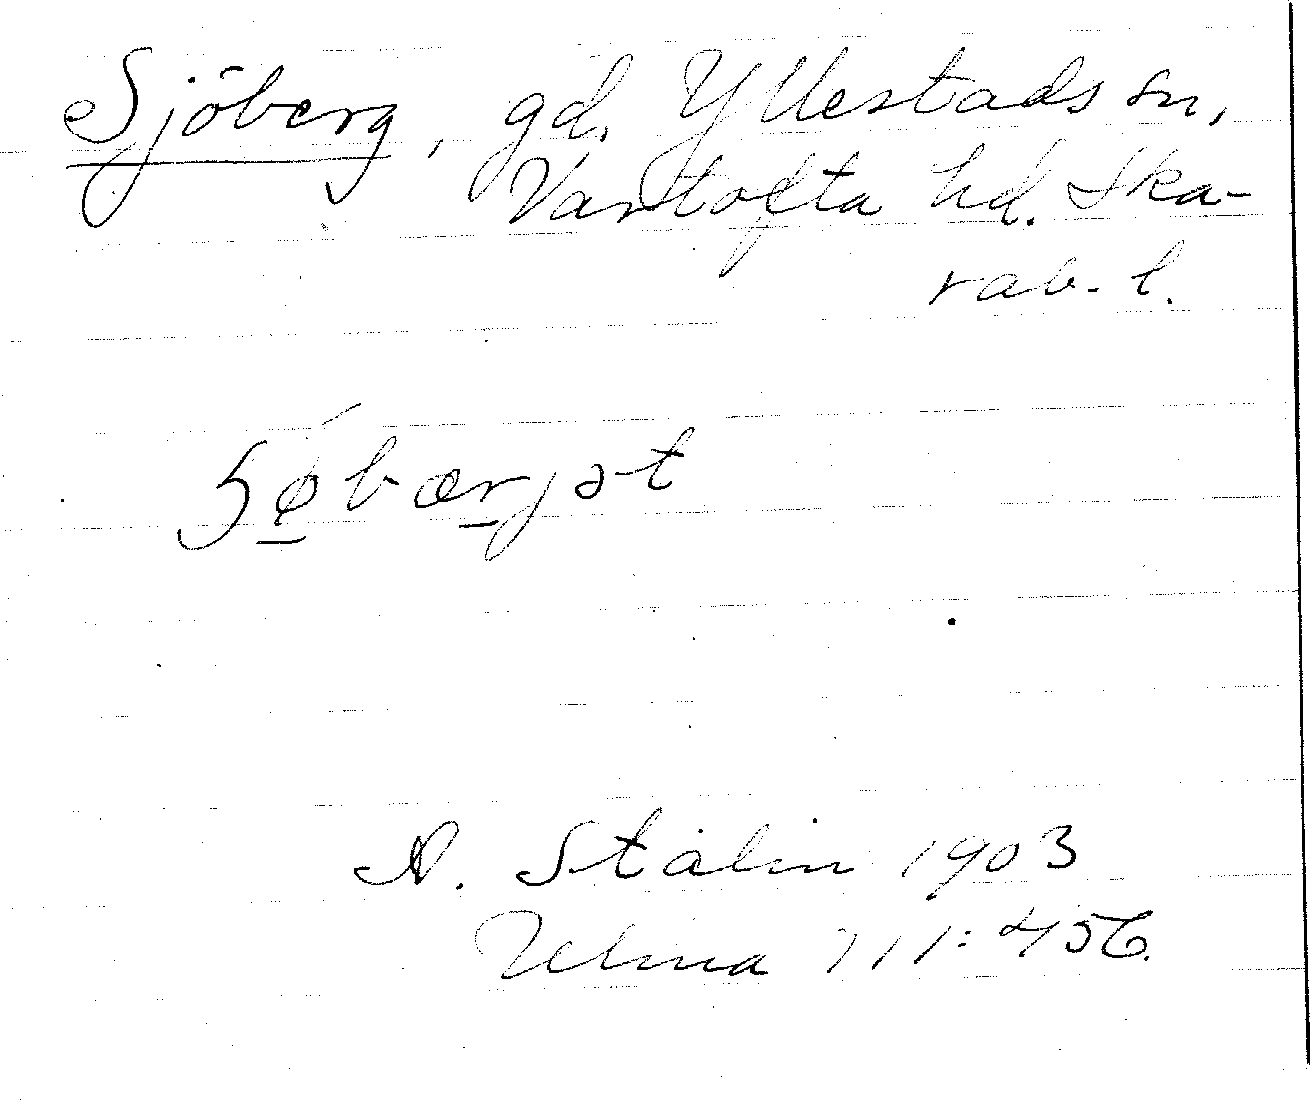 Sjöberg, gd. Yllestads sn,
Vartofta hd. Ska-
rab. l.
A. Stalin 1903
Ulma 111:456.